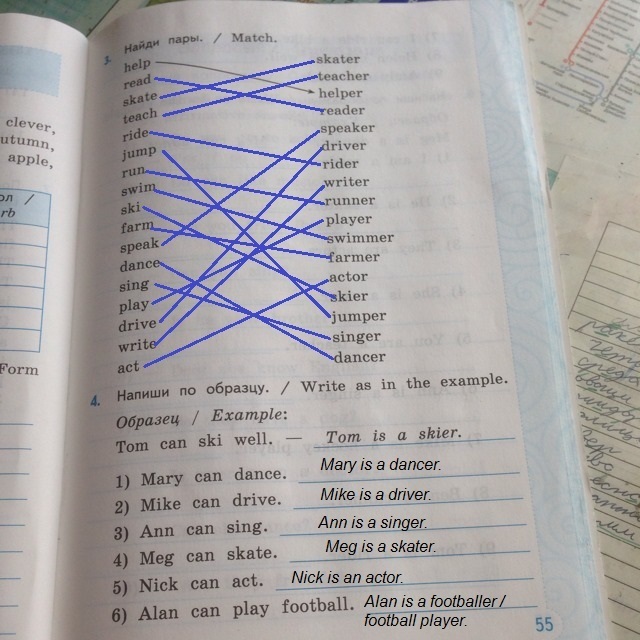 clever,
utumn,
apple,
ол /
rb
Form
3. Найди пары. / Match.
help
read
skate
teach
ride
jump
run
swim
ski
farm
speak
dance
sing
play
drive
write
act
skater
teacher
helper
reader
speaker
driver
rider
writer
runner
player
swimmer
farmer
actor
skier
jumper
singer
dancer
4. Напиши по образцу. / Write as in the example.
Образец / Example:
Tom can ski well. — Tom is a skier.
1) Mary can dance. Mary is a dancer.
2) Mike can drive. Mike is a driver.
3) Ann can sing. Ann is a singer.
4) Meg can skate. Meg is a skater.
5) Nick can act. Nick is an actor.
6) Alan can play football. Alan is a footballer /
football player.
55